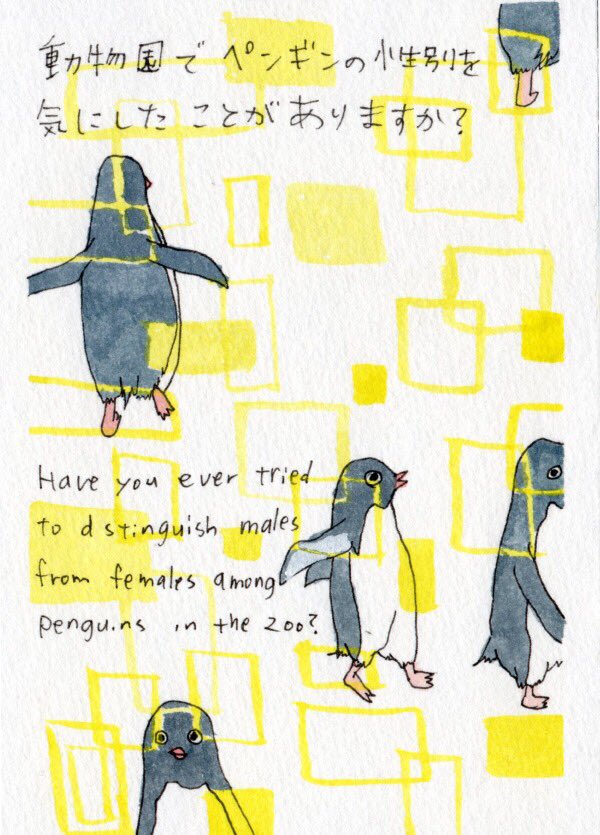 動物園でペンギンの性別を
気にしたことがありますか?
Have you ever tried
to dstinguish males
from females among
penguins in the zoo?